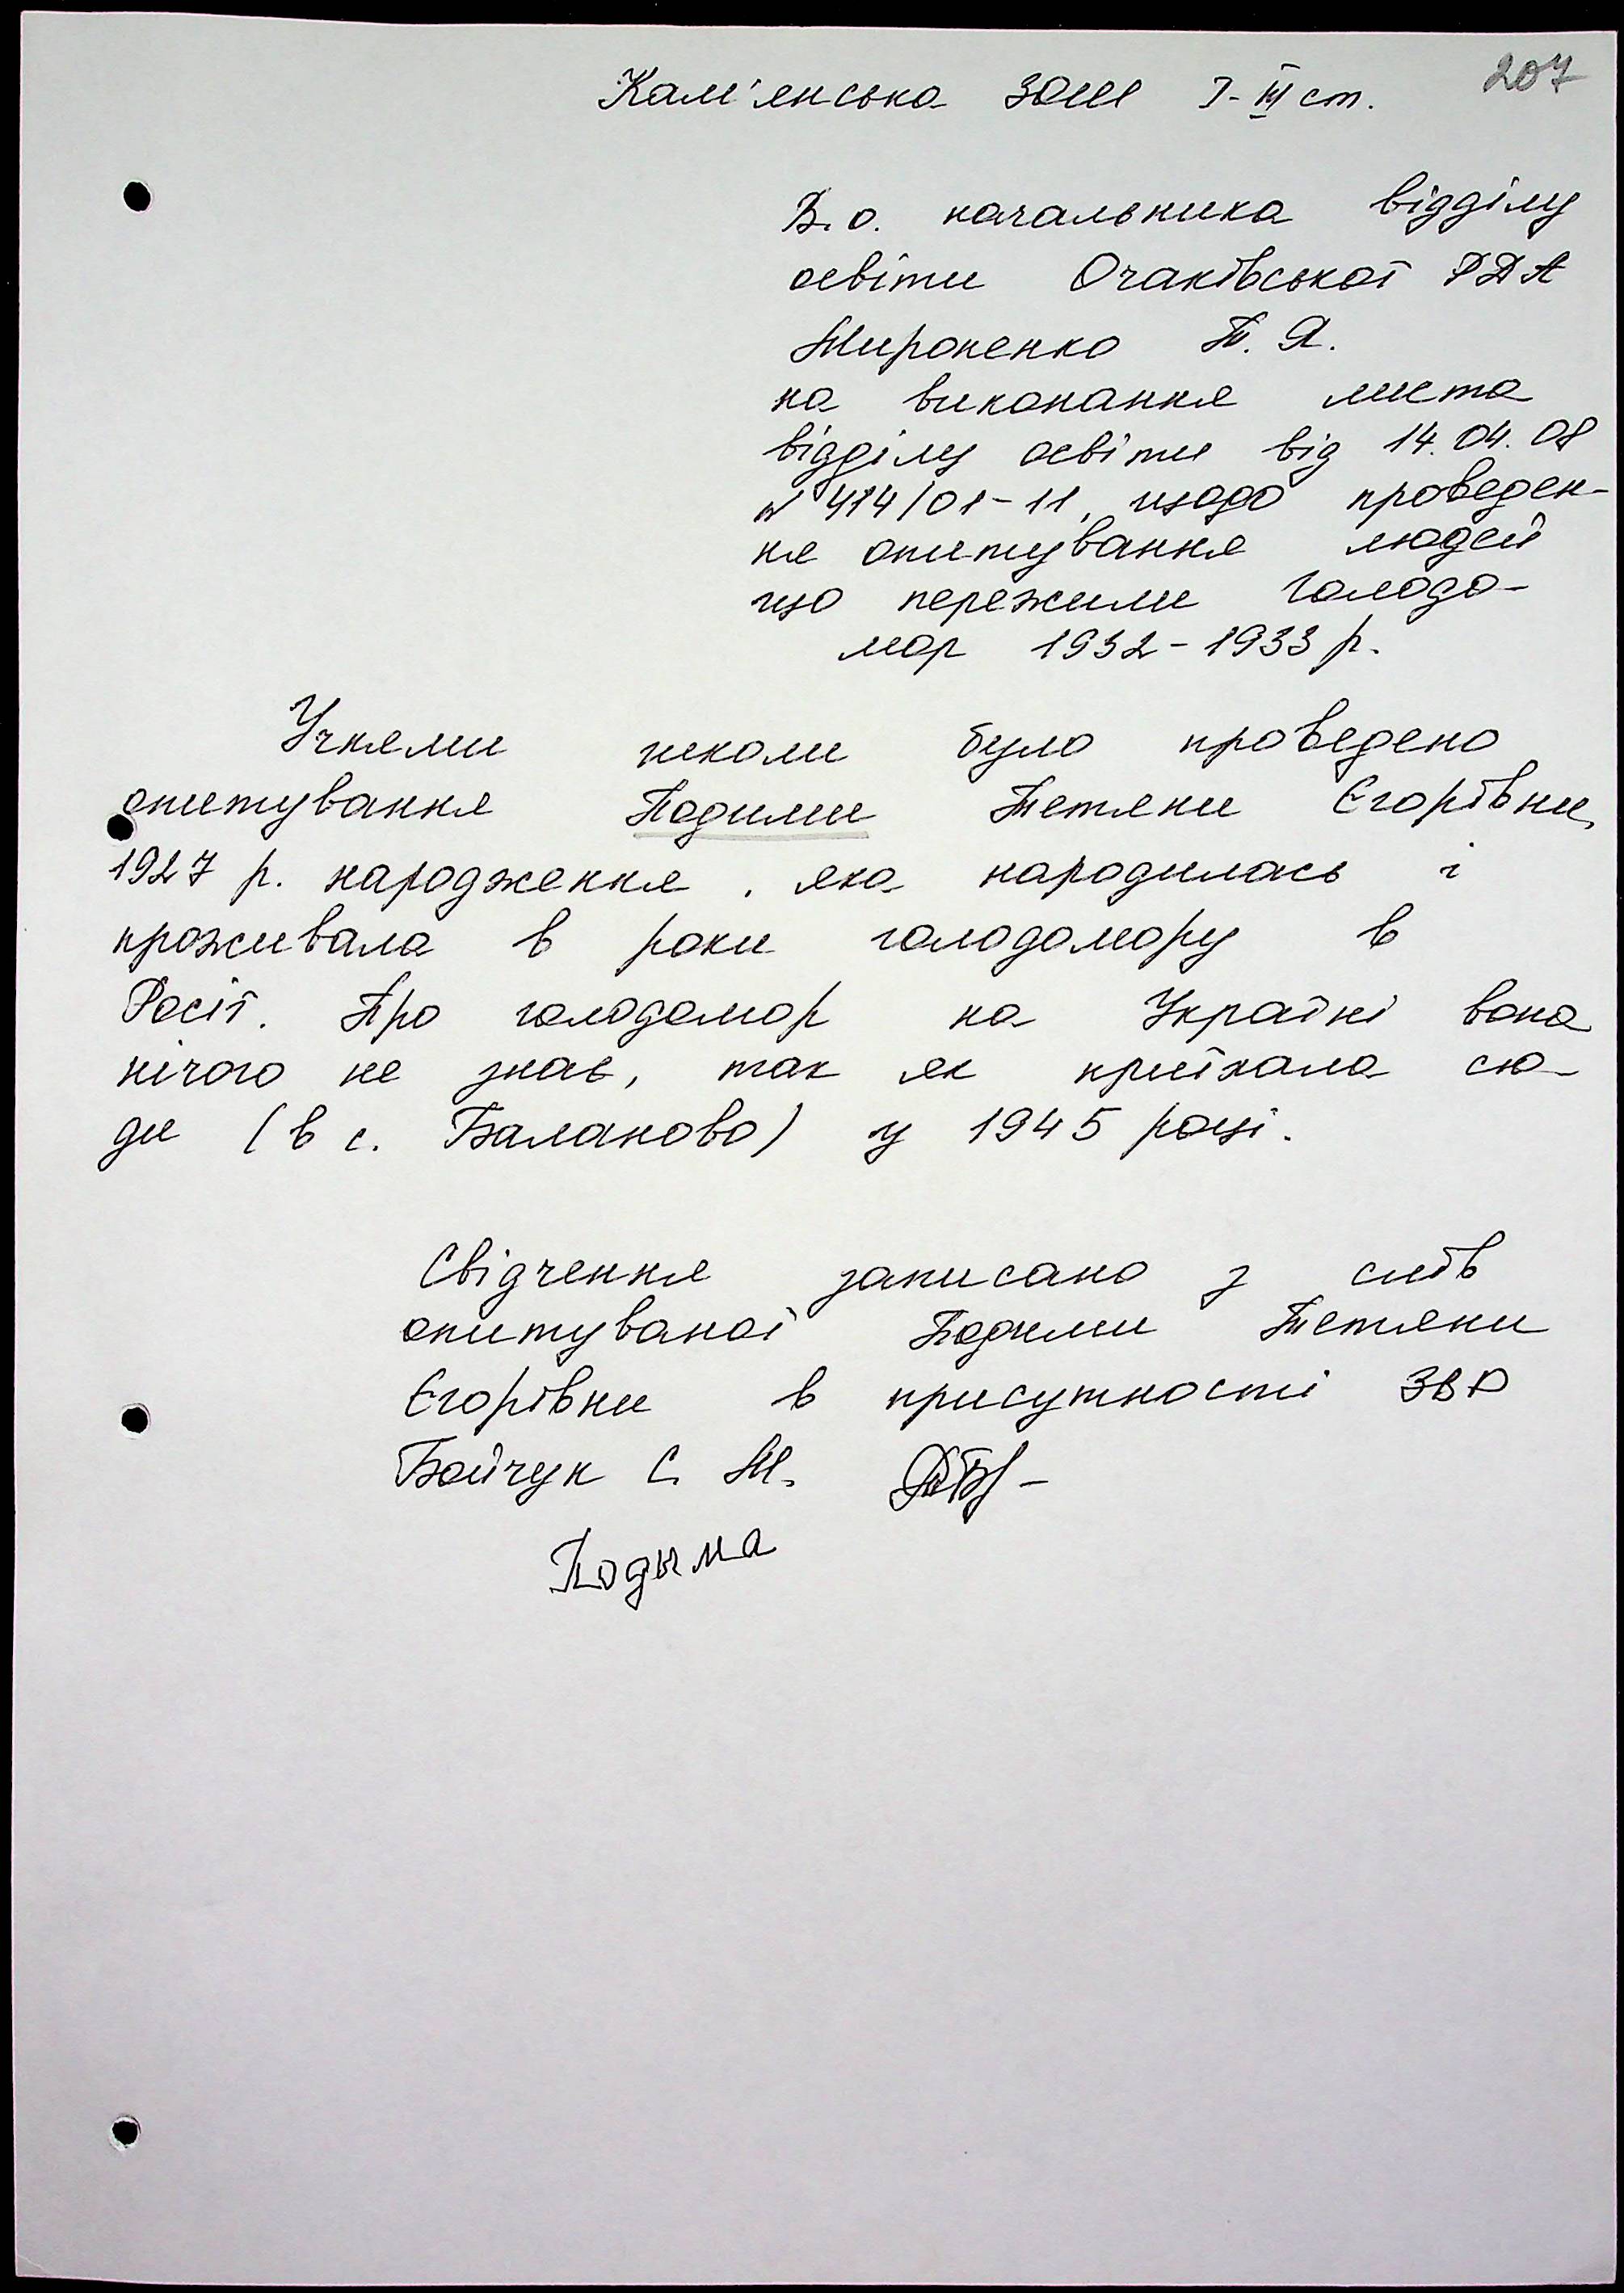 207
Кам'янська ЗОШ I-III ст.
В.о. начальника відділу
освіти Очаківської РДА
Мироненко Т. Я.
на виконання листа
відділу освіти від 14.04.08
№ 414/01-11, щодо проведен-
ня опитування людей
що пережили Голодо-
мор 1932-1933 р.
Учнями школи було проведено
опитування Подими Тетяни Єгорівни,
1927 р. народження, яка народилась і
проживала в роки голодомору в
Росії. Про голодомор на Україні вона
нічого не знає, так як приїхала сю-
ди (в с. Баланово) у 1945 році.
Свідчення записано з слів
опитуваної Подими Тетяни
Єгорівни в присутності ЗВР
Бойчук С. М.
Подыма